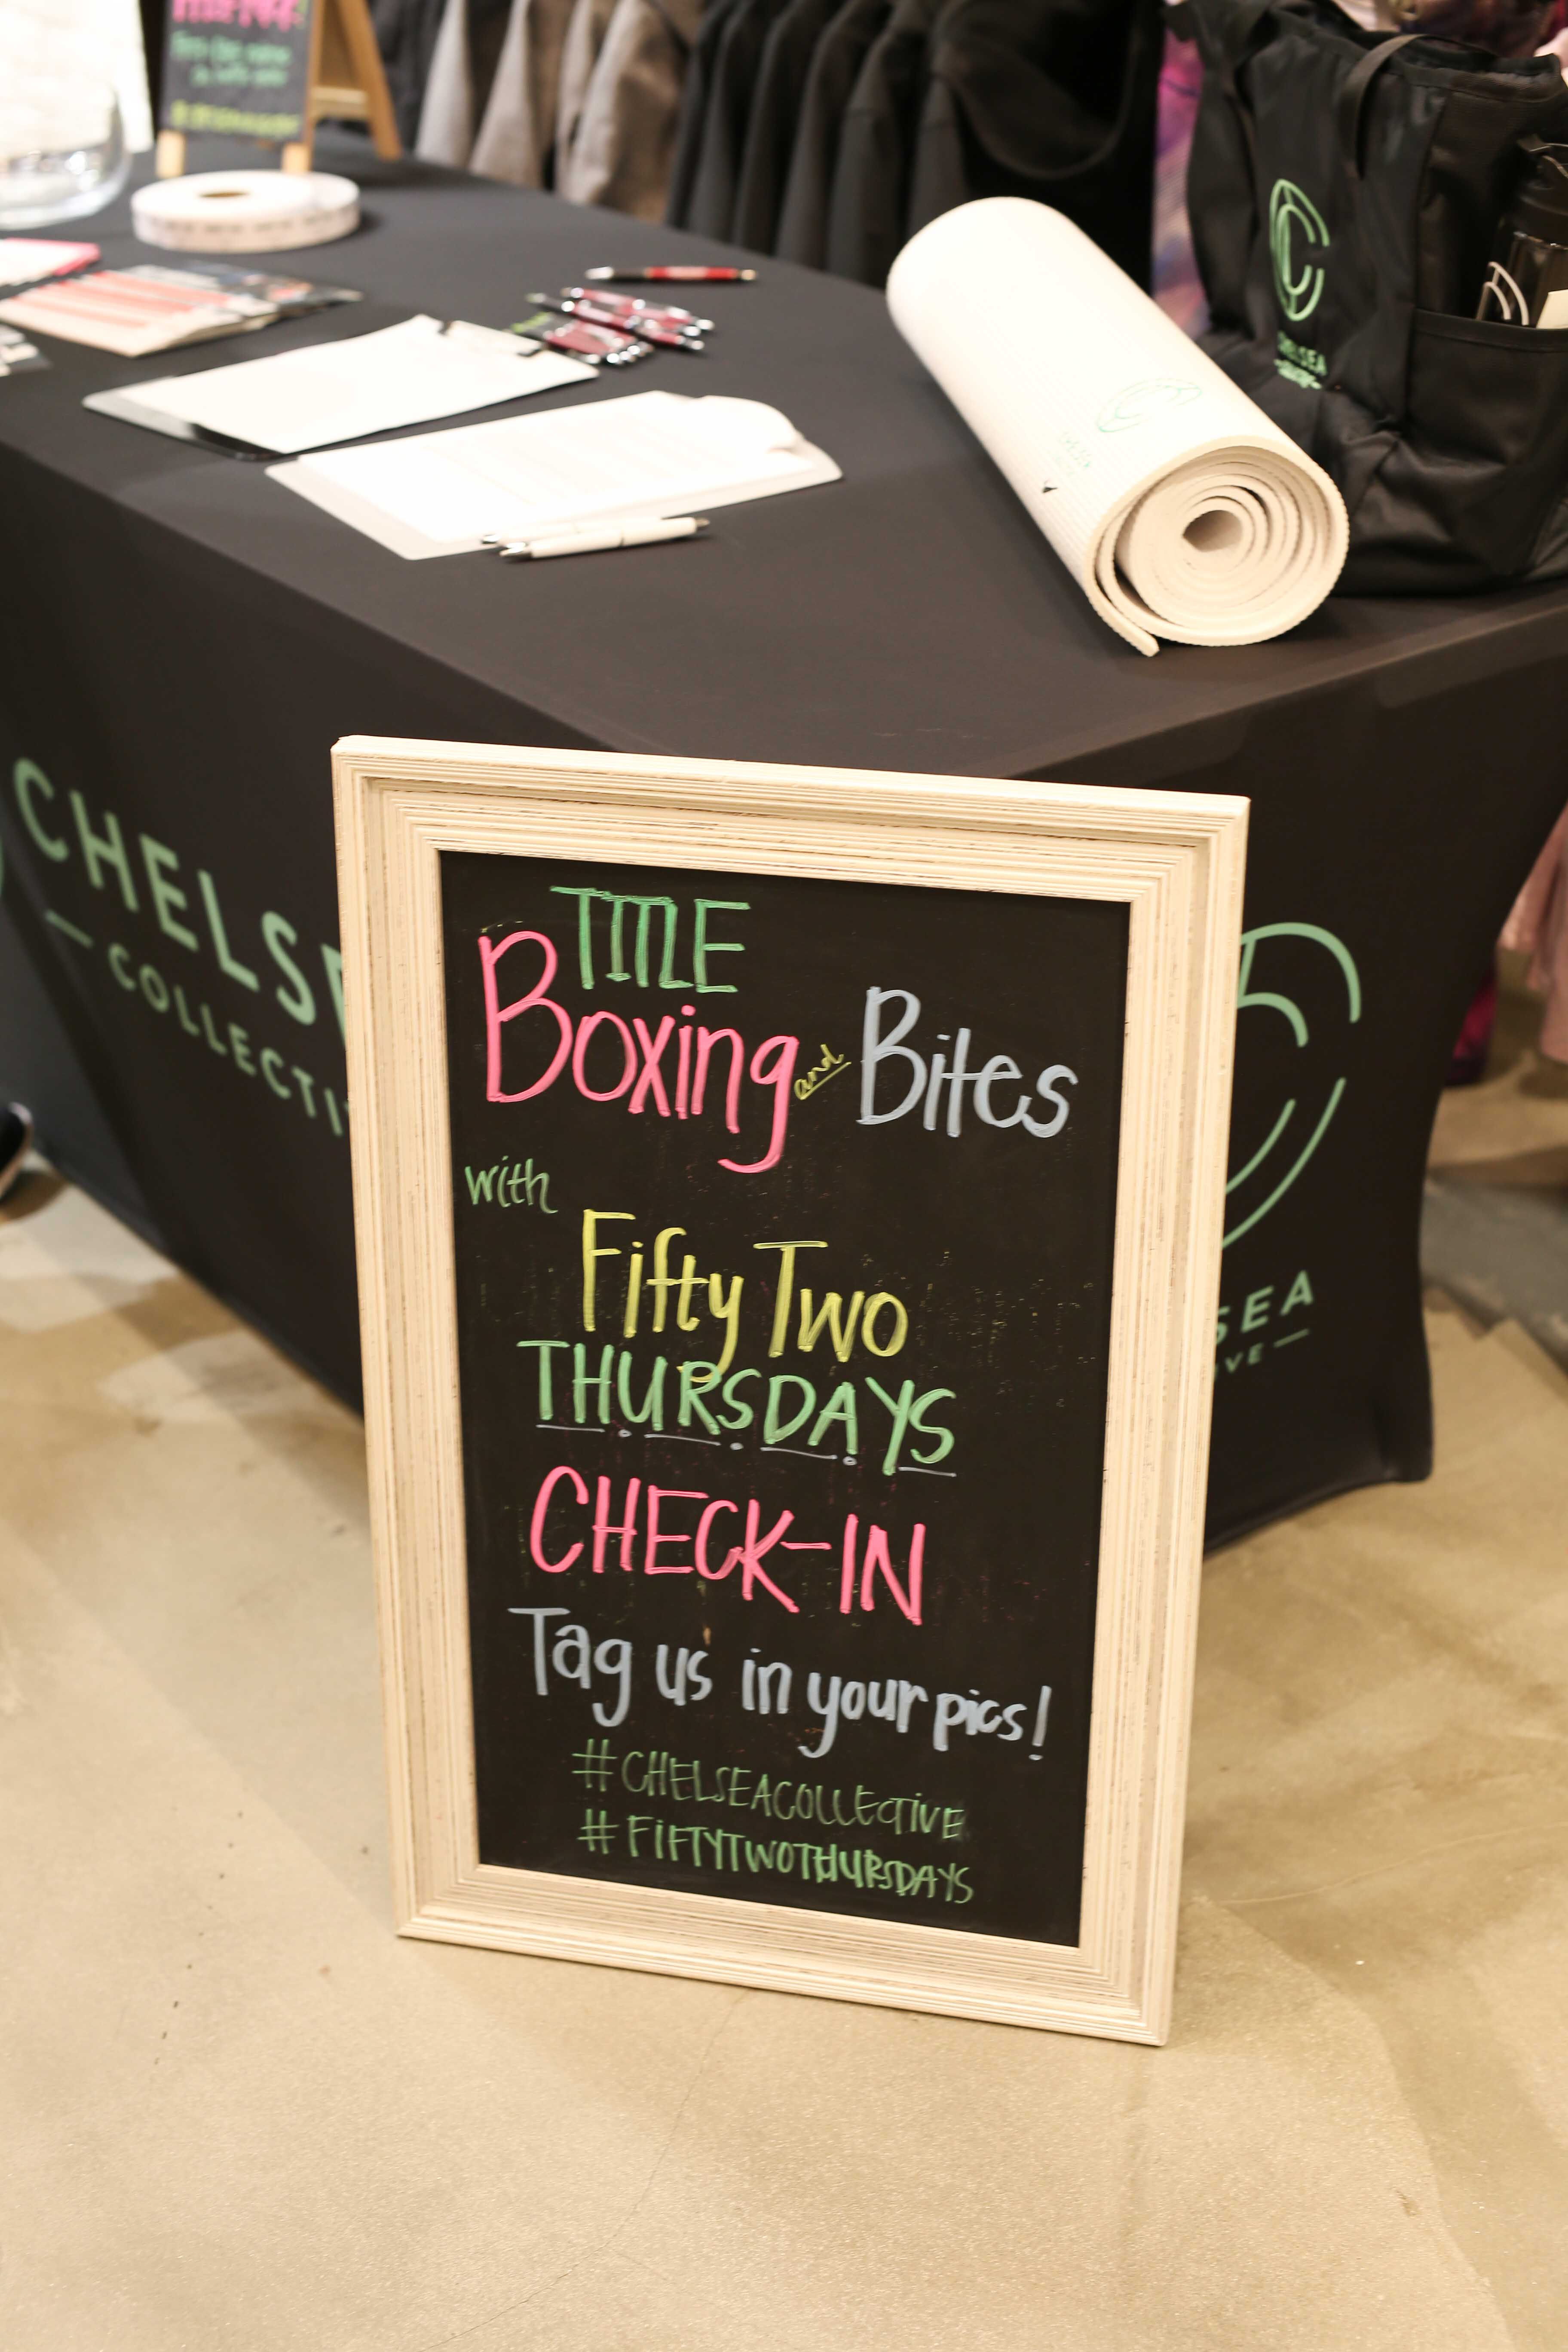 CHELSEA
COLLECTIVE
TITLE
Boxing and Bites
with
Fifty Two
THURSDAYS
CHECK-IN
Tag us in your pics!
#CHELSEACOLLECTIVE
#FIFTYTWOTHURSDAYS
CHELSEA